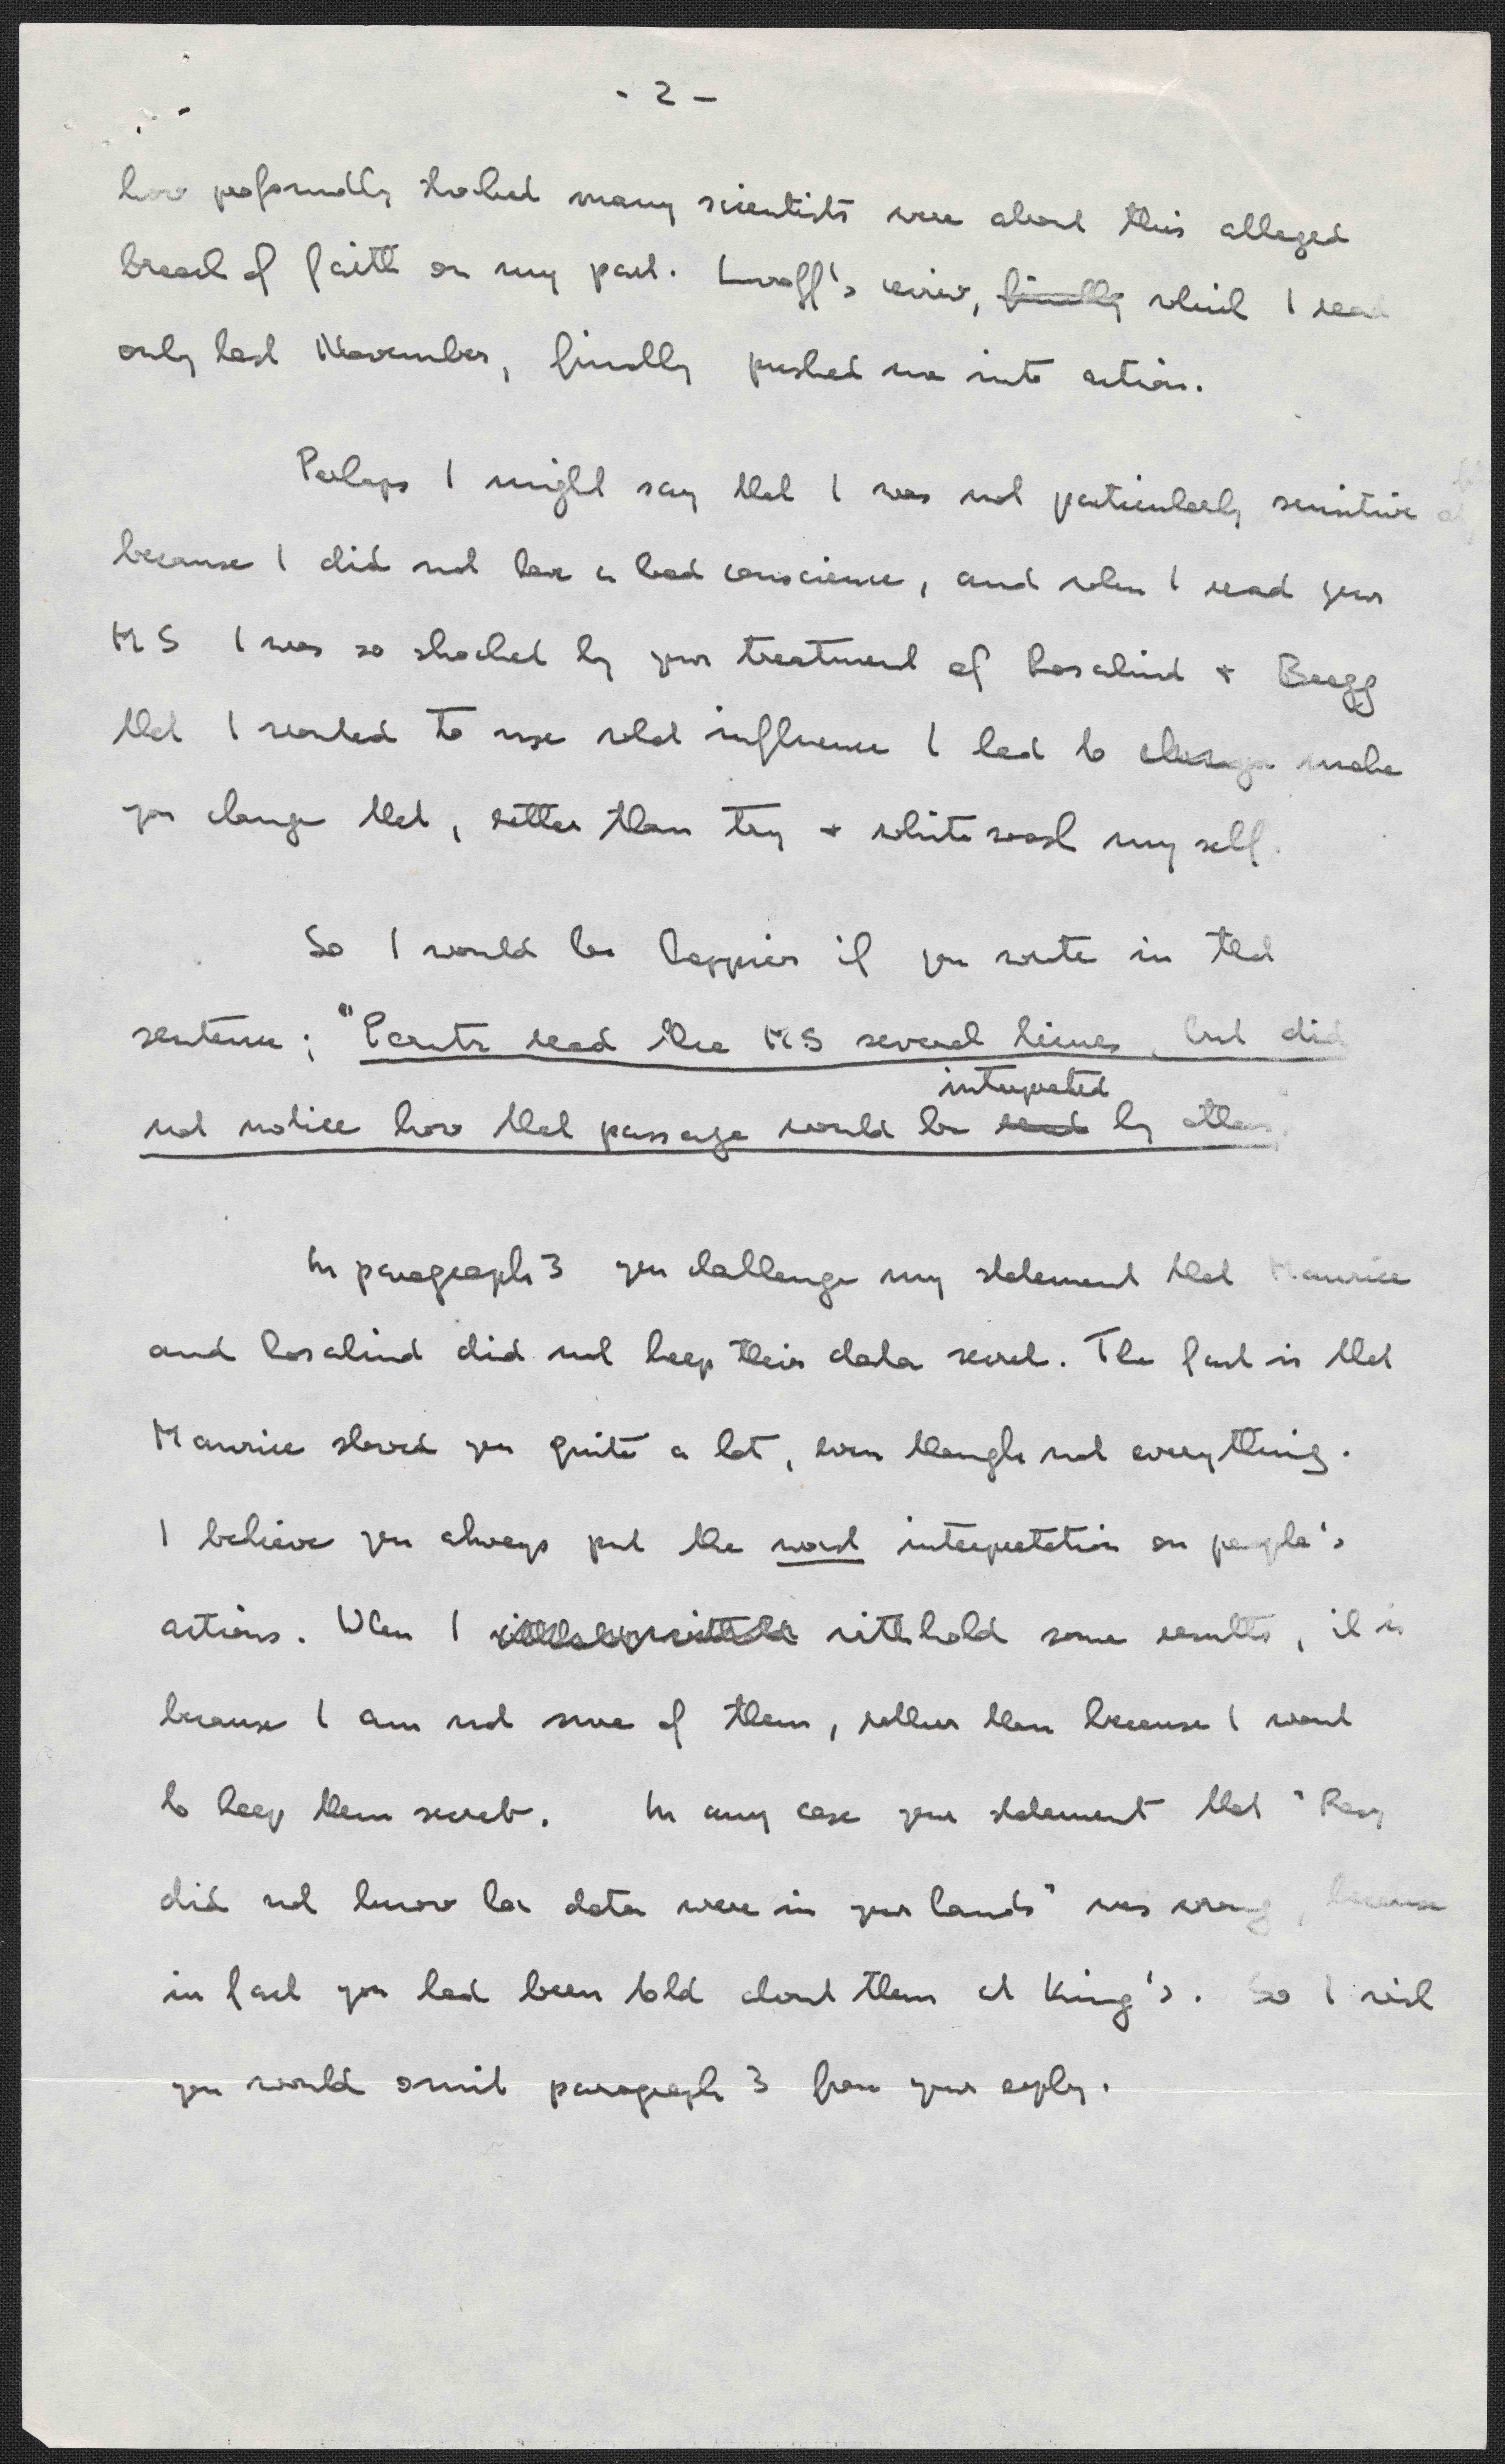 - 2 -
how profoundly shocked many scientists were about this alleged
breach of faith on my part. Lwoff's review, finally which I read
only last November, finally pushed me into action.
Perhaps I might say that I was not particularly sensitive
because I did not have a bad conscience, and when I read your
MS I was so shocked by your treatment of Rosalind + Bragg
that I wanted to use what influence I had to change make
you change that, rather than try + whitewash myself.
So I would be happier if you wrote in that
sentence: "Perutz read the MS several times, but did
interpreted
not notice how that passage would be read by others.
In paragraph 3 you challenge my statement that Maurice
and Rosalind did not keep their data secret. The fact is that
Maurice showed you quite a lot, even though not everything.
I believe you always put the worst interpretation on people's
actions. When I withhold some results, it is
because I am not sure of them, rather than because I want
to keep them secret. In any case your statement that "Rosy
did not know her data were in your hands" was wrong, because
in fact you had been told about them at King's. So I wish
you would omit paragraph 3 from your reply.